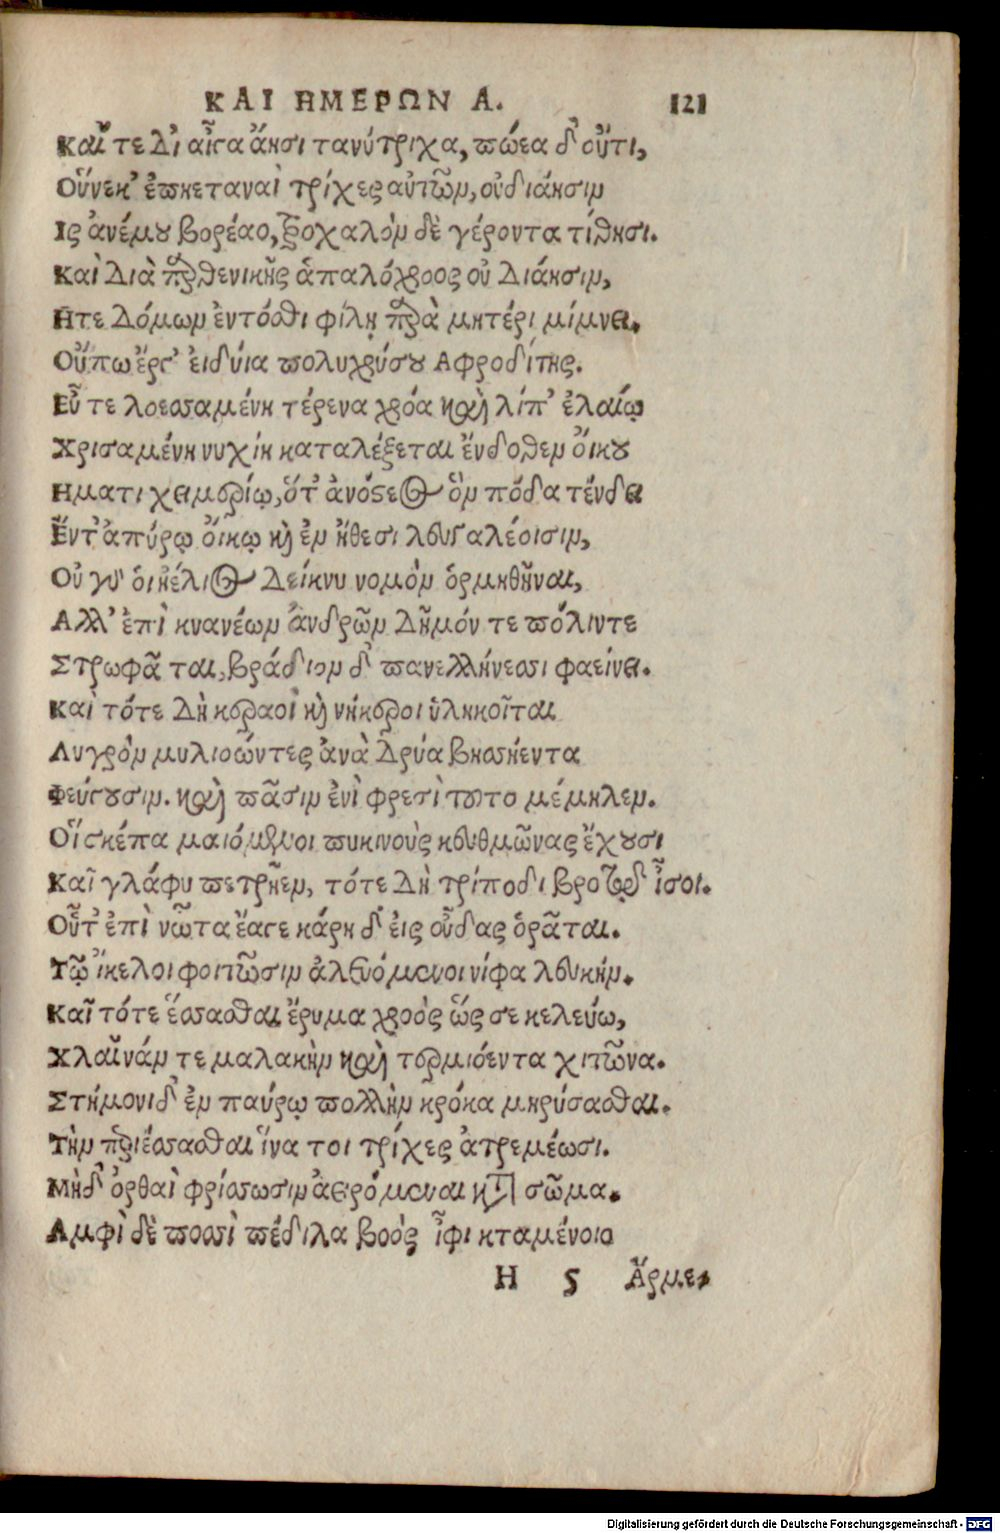 ΚΑΙ ΗΜΕΡΩΝ Α. 121
Καί τε δι' αἶγα ἄησι τανύτριχα, πώεα δ' οὔτι,
Οὕνεκ' ἐπηεταναὶ τρίχες αὐτῶν, οὐ διάησιν
Ις ἀνέμου βορέαο, τροχαλὸν δὲ γέροντα τίθησι.
Καὶ διὰ παρθενικῆς ἁπαλόχροος οὐ διάησιν,
Ητε δόμων ἐντόσθι φίλῃ παρὰ μητέρι μίμνει.
Οὔπω ἔργ' εἰδυία πολυχρύσου Αφροδίτης.
Εὖ τε λοεσσαμένη τέρενα χρόα καὶ λίπ' ἐλαίῳ
Χρισαμένη νυχίη καταλέξεται ἔνδοθεν οἴκου
Ηματι χειμερίῳ, ὅτ' ἀνόστεος ὃν πόδα τένδει
Ἔν τ' ἀπύρῳ οἴκῳ καὶ ἐν ἤθεσι λευγαλέοισιν,
Οὐ γάρ οἱ ἠέλιος δείκνυ νομὸν ὁρμηθῆναι,
Αλλ' ἐπὶ κυανέων ἀνδρῶν δῆμόν τε πόλιντε
Στρωφᾶται, βράδιον δ' πανελλήνεσσι φαείνει.
Καὶ τότε δὴ κεραοὶ καὶ νήκεροι ὑληκοῖται
Λυγρὸν μυλιοώντες ἀνὰ δρύα βησσήεντα
Φεύγουσιν. καὶ πᾶσιν ἐνὶ φρεσὶ τοῦτο μέμηλεν.
Οἵ σκέπα μαιόμενοι πυκινοὺς κευθμῶνας ἔχουσι
Καὶ γλάφυ πετρῆεν, τότε δὴ τρίποδι βροτῷ ἶσοι.
Οὗτ' ἐπὶ νῶτα ἔαγε κάρη δ' εἰς οὖδας ὁρᾶται.
Τῷ ἴκελοι φοιτῶσιν ἀλευόμενοι νίφα λευκήν.
Καὶ τότε ἕσσασθαι ἔρυμα χροὸς ὥς σε κελεύω,
Χλαῖνάν τε μαλακὴν καὶ τερμιόεντα χιτῶνα.
Στήμονι δ' ἐν παύρῳ πολλὴν κρόκα μηρύσασθαι.
Τὴν περιέσσασθαι ἵνα τοι τρίχες ἀτρεμέωσι.
Μὴ δ' ὀρθαὶ φρίσσωσιν ἀειρόμεναι κατὰ σῶμα.
Αμφὶ δὲ ποσσὶ πέδιλα βοὸς ἶφι κταμένοιο
Η 5 Ἄρμε-
Digitalisierung gefördert durch die Deutsche Forschungsgemeinschaft - DFG